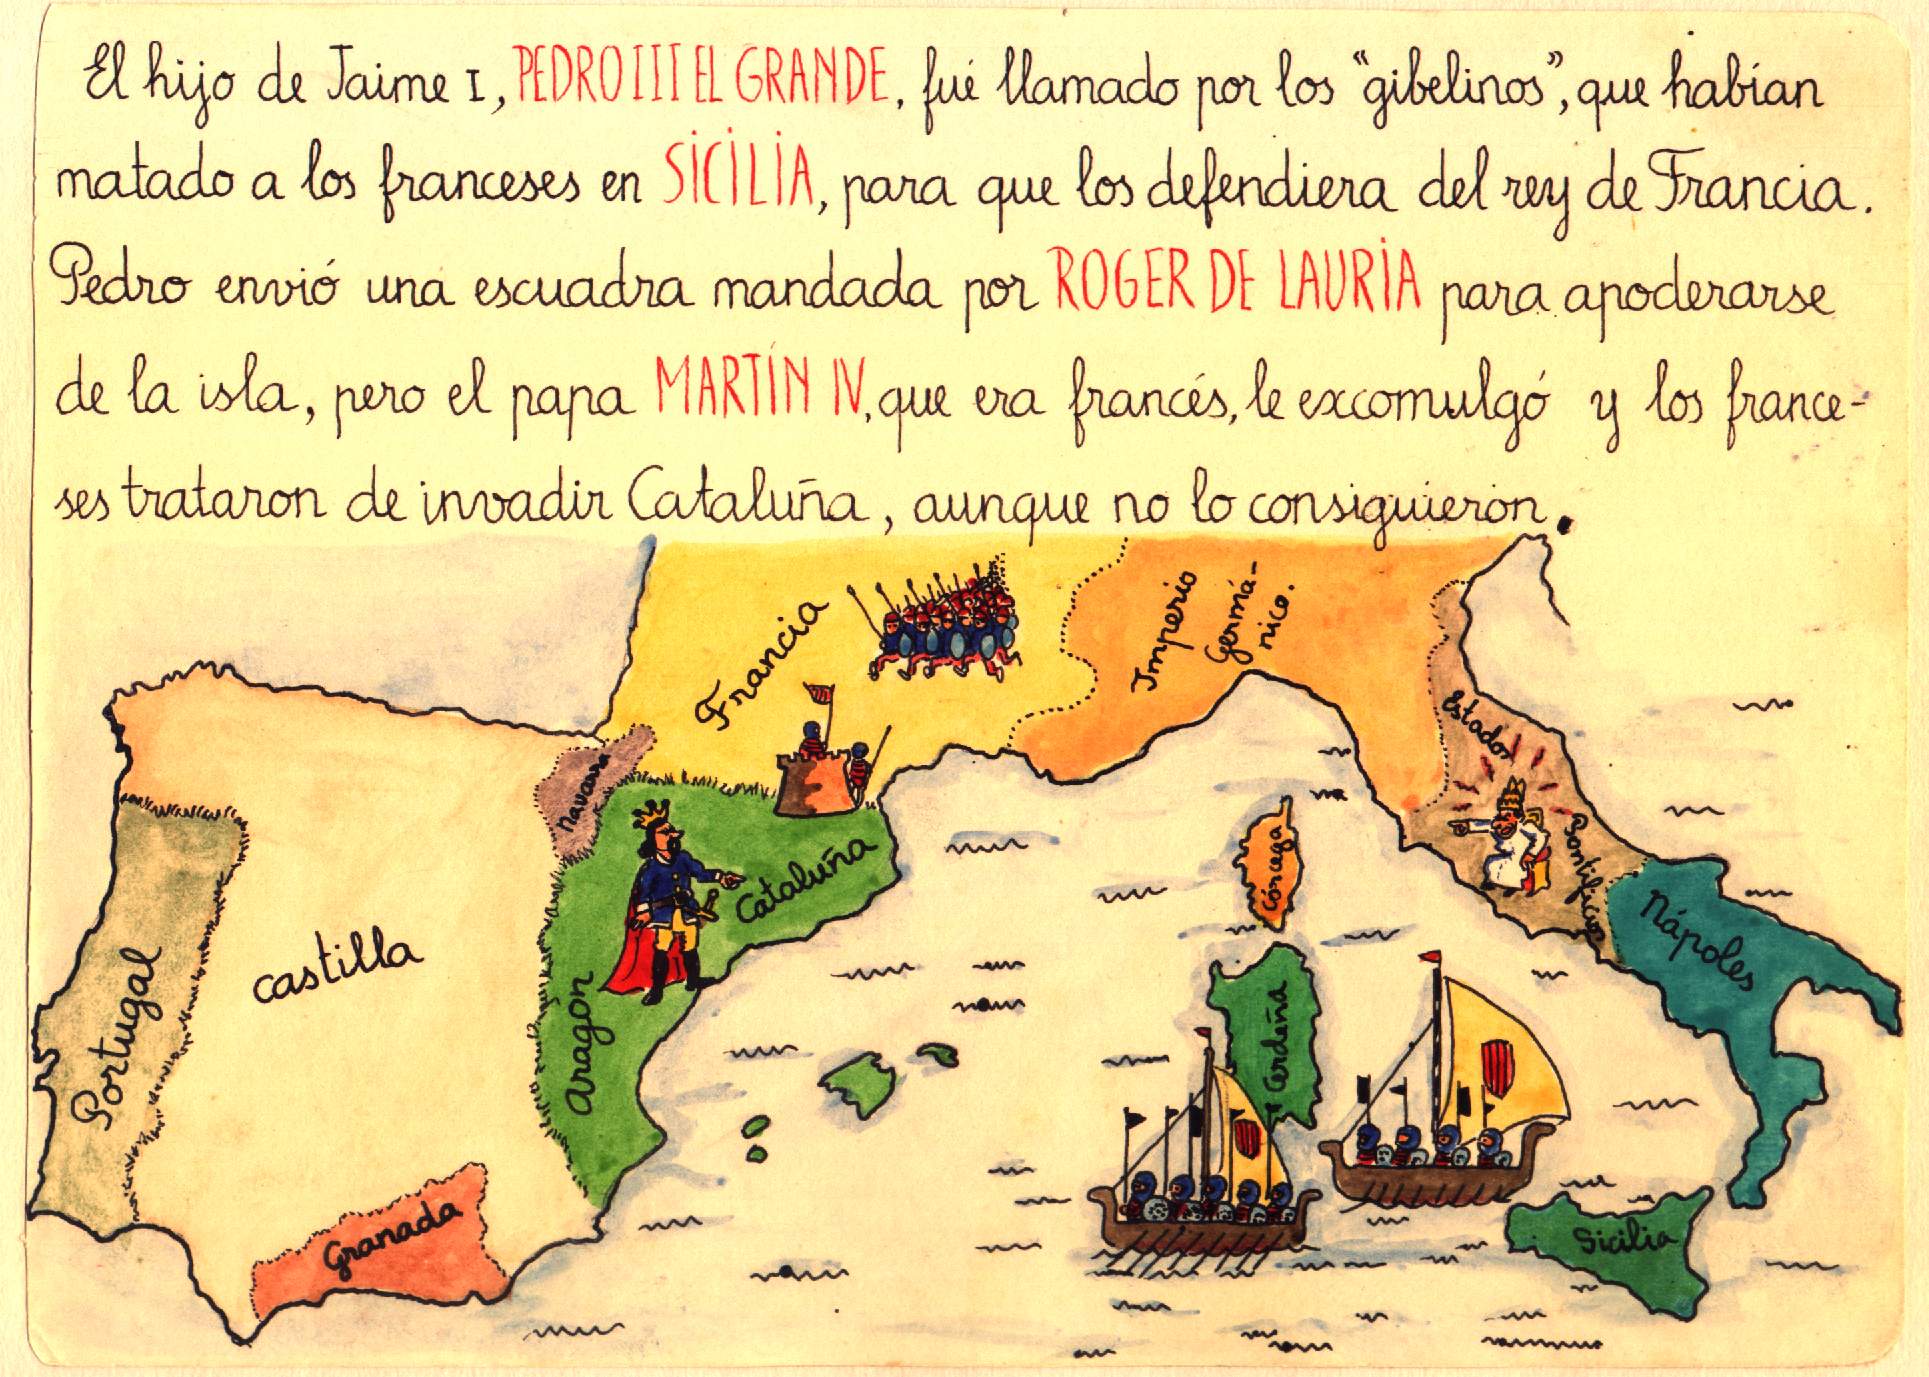 El hijo de Jaime I, PEDRO III EL GRANDE, fué llamado por los "gibelinos", que habían
matado a los franceses en SICILIA, para que los defendiera del rey de Francia.
Pedro envió una escuadra mandada por ROGER DE LAURIA para apoderarse
de la isla, pero el papa MARTÍN IV, que era francés, le excomulgó y los france-
ses trataron de invadir Cataluña, aunque no lo consiguieron.
Francia
Imperio
Germá-
nico.
Estados
Pontificios
Navarra
Cataluña
Córcega
Nápoles
Castilla
Portugal
Aragon
Cerdeña
Granada
Sicilia